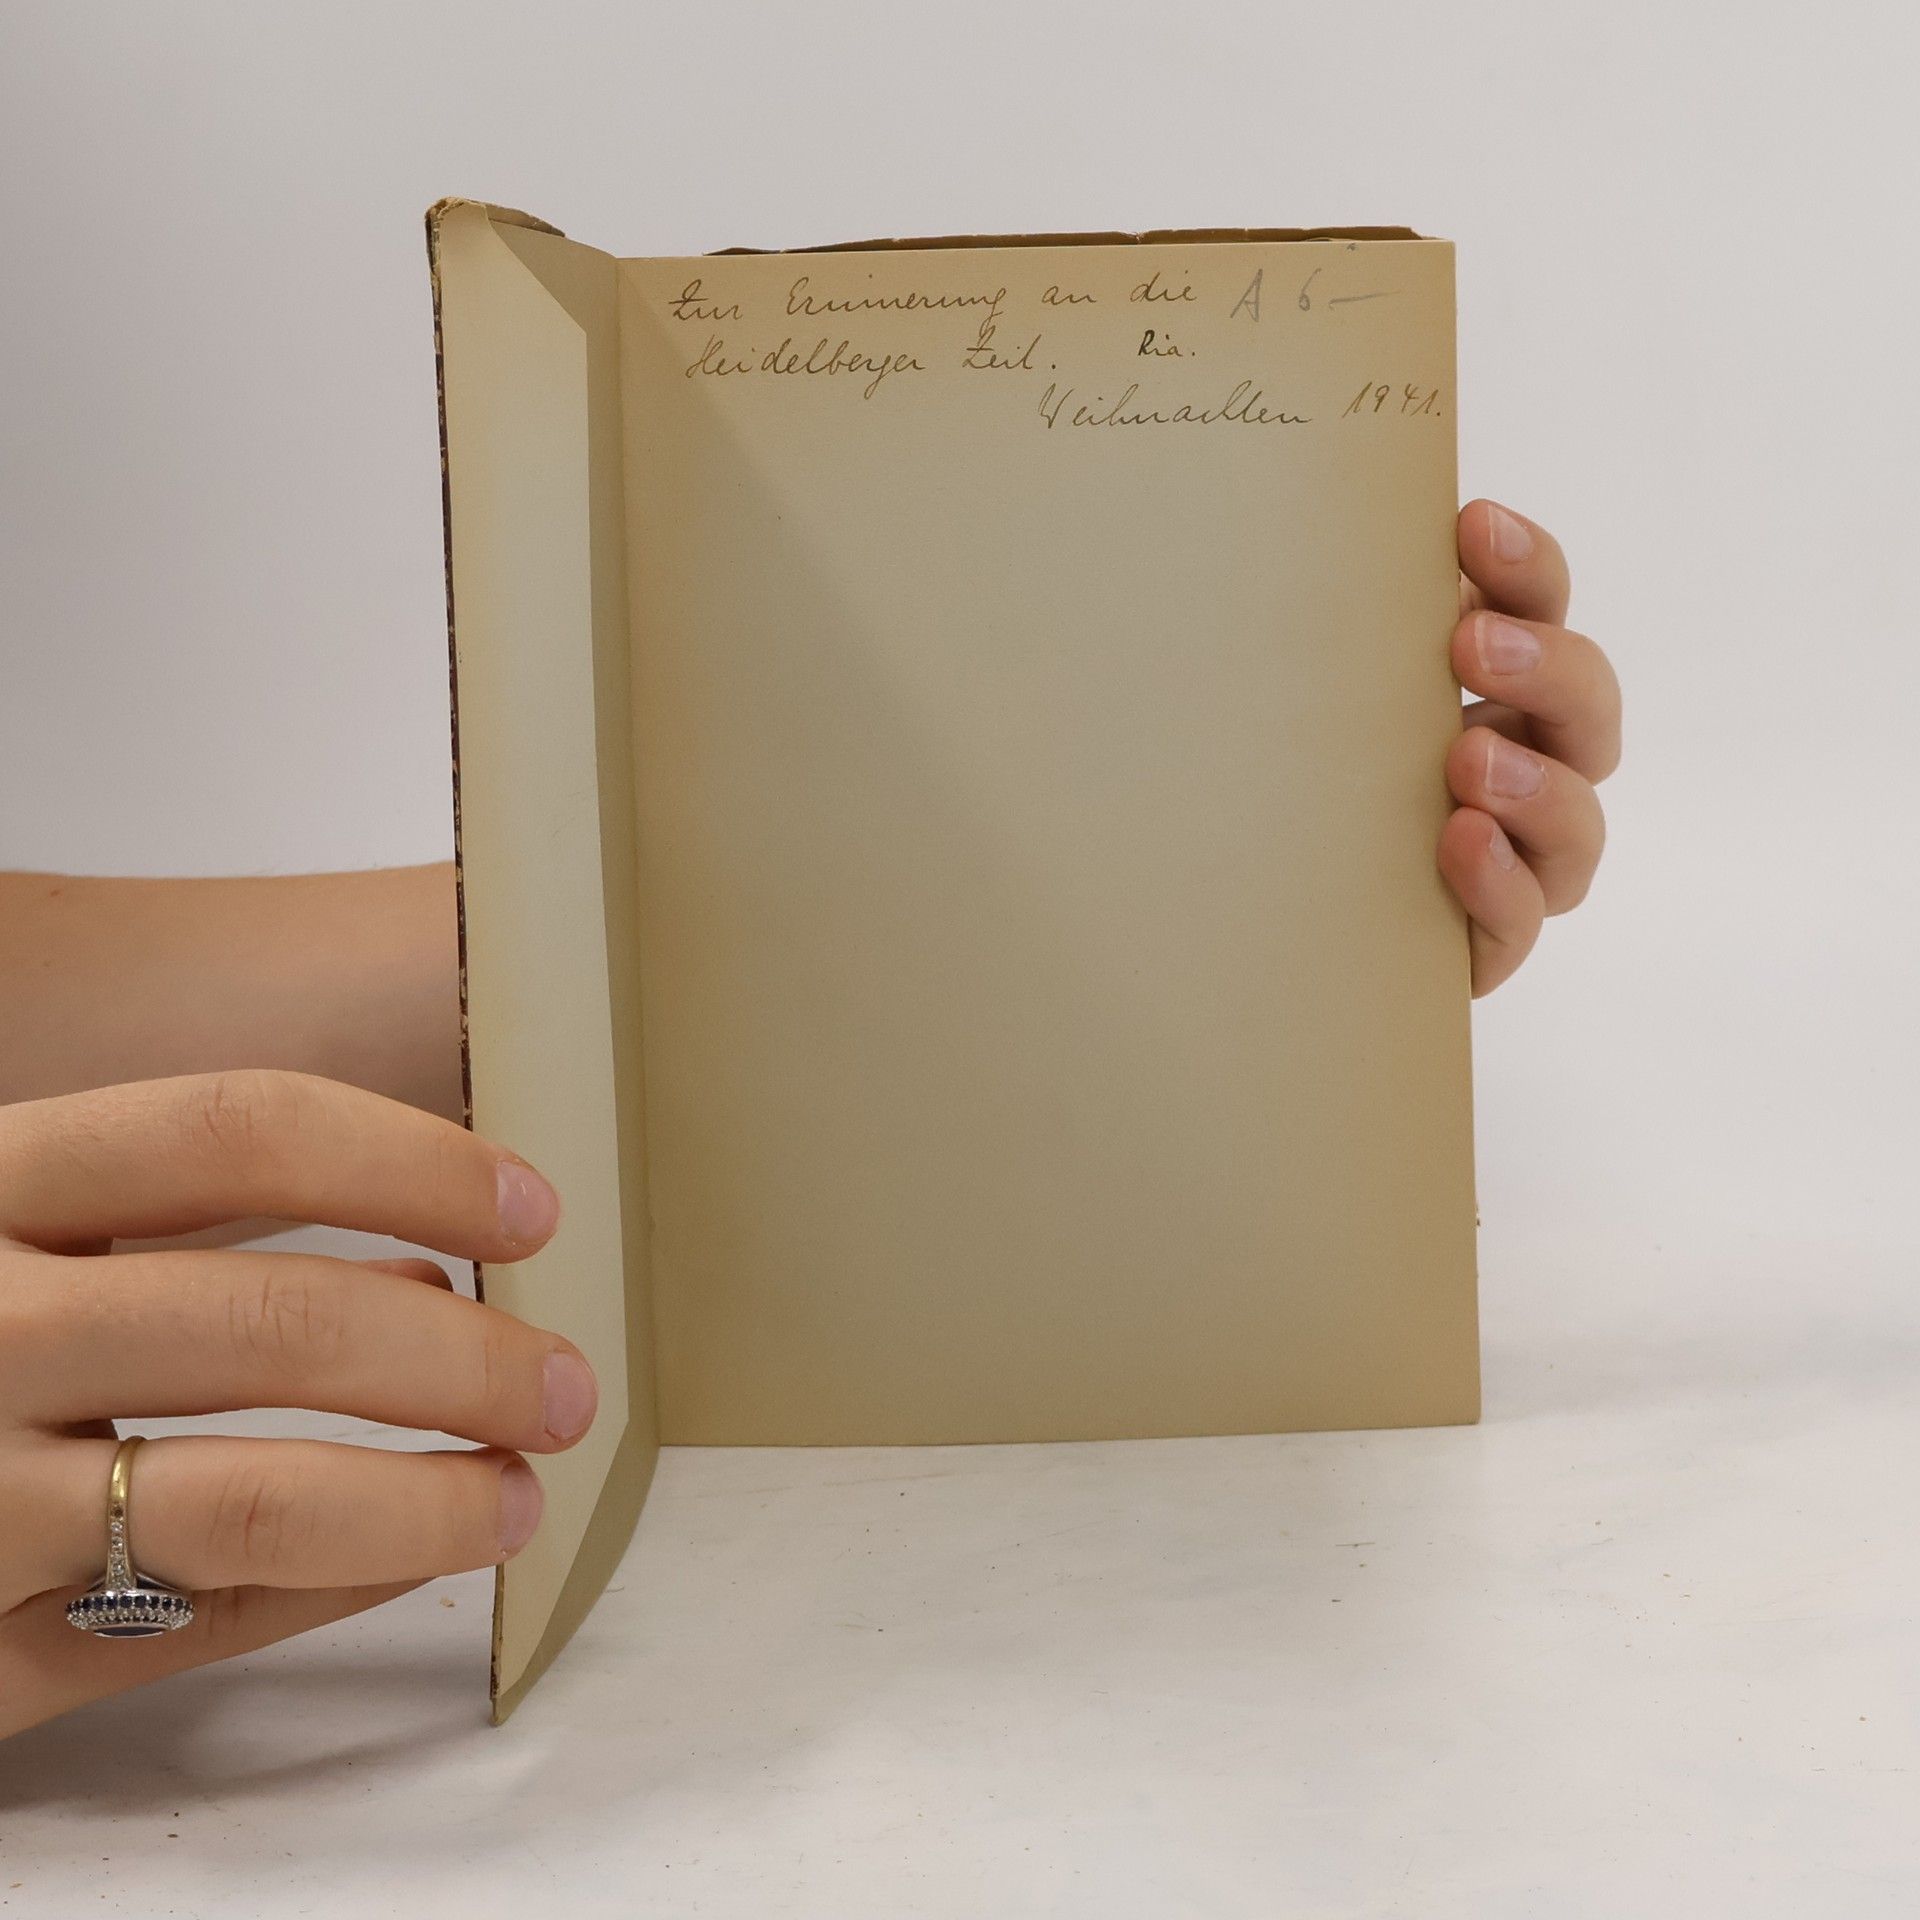 Zur Erinnerung an die A 6.—
Heidelberger Zeit. Ria.
Weihnachten 1941.